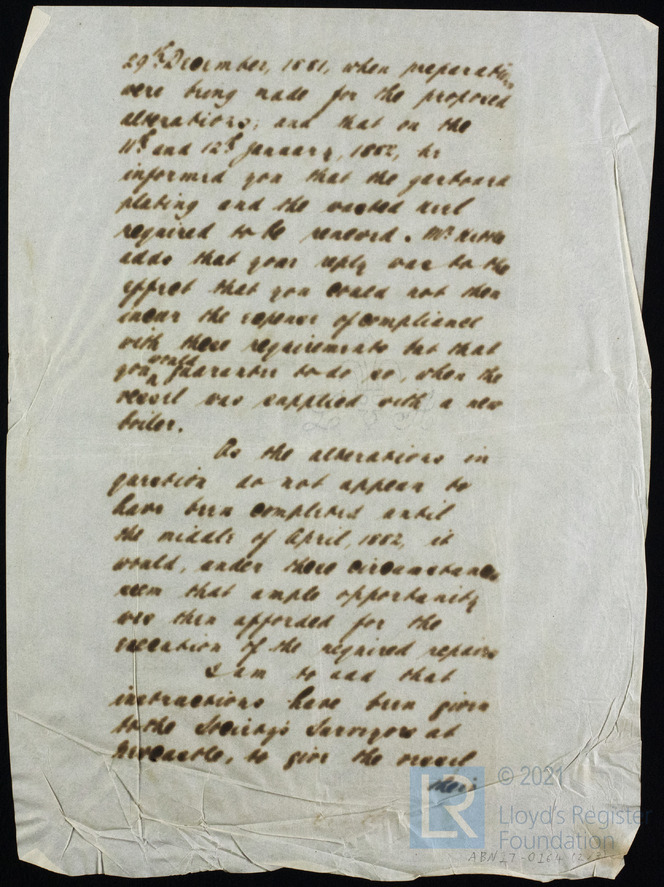 29th December, 1881, when preparations
were being made for the proposed
alterations; and that on the
11th and 12th January, 1882, he
informed you that the garboard
plating and the wasted keel
required to be renewed. Mr
adds that your reply was to the
effect that you could not then
incur the expense of compliance
with these requirements but that
you would guarantee to do so, when the
vessel was supplied with a new
boiler.
As the alterations in
question do not appear to
have been completed until
the middle of April, 1882, it
would, under these circumstances
seem that ample opportunity
was then afforded for the
execution of the required repairs
I am to add that
instructions have been given
to the Society's Surveyors at
Newcastle, to give the vessel
their
LR
© 2021
Lloyd's Register
Foundation